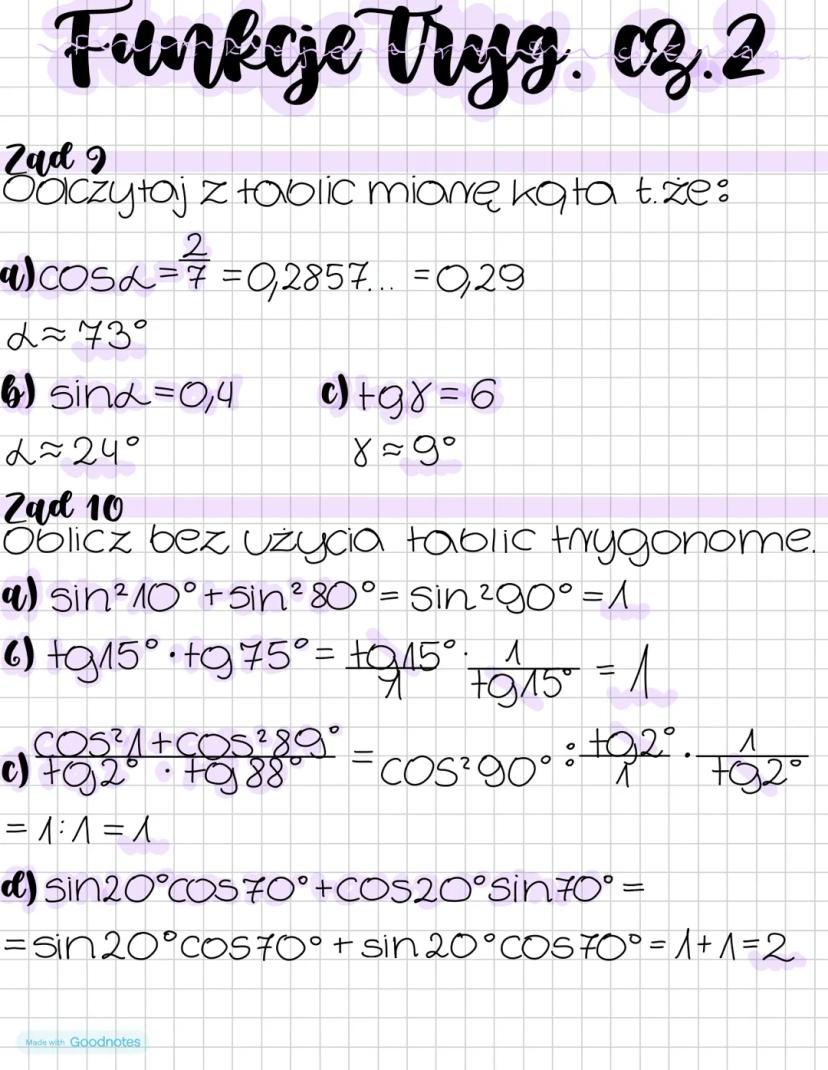 Funkcje Tryg. cz.2
Zad 9
Odczytaj z tablic miarę kąta t.że:
a) cosα = 2/7 = 0,2857... = 0,29
α ≈ 73°
b) sinα = 0,4 c) tgγ = 6
α ≈ 24° γ ≈ 9°
Zad 10
Oblicz bez użycia tablic trygonome.
a) sin²10° + sin²80° = sin²90° = 1
b) tg15° · tg75° = tg15°/1 · 1/tg15° = 1
c) cos²1 + cos²89° / tg2° · tg88° = cos²90° : tg2°/1 · 1/tg2°
= 1:1 = 1
d) sin20°cos70° + cos20°sin70° =
= sin20°cos70° + sin20°cos70° = 1+1=2
Made with Goodnotes